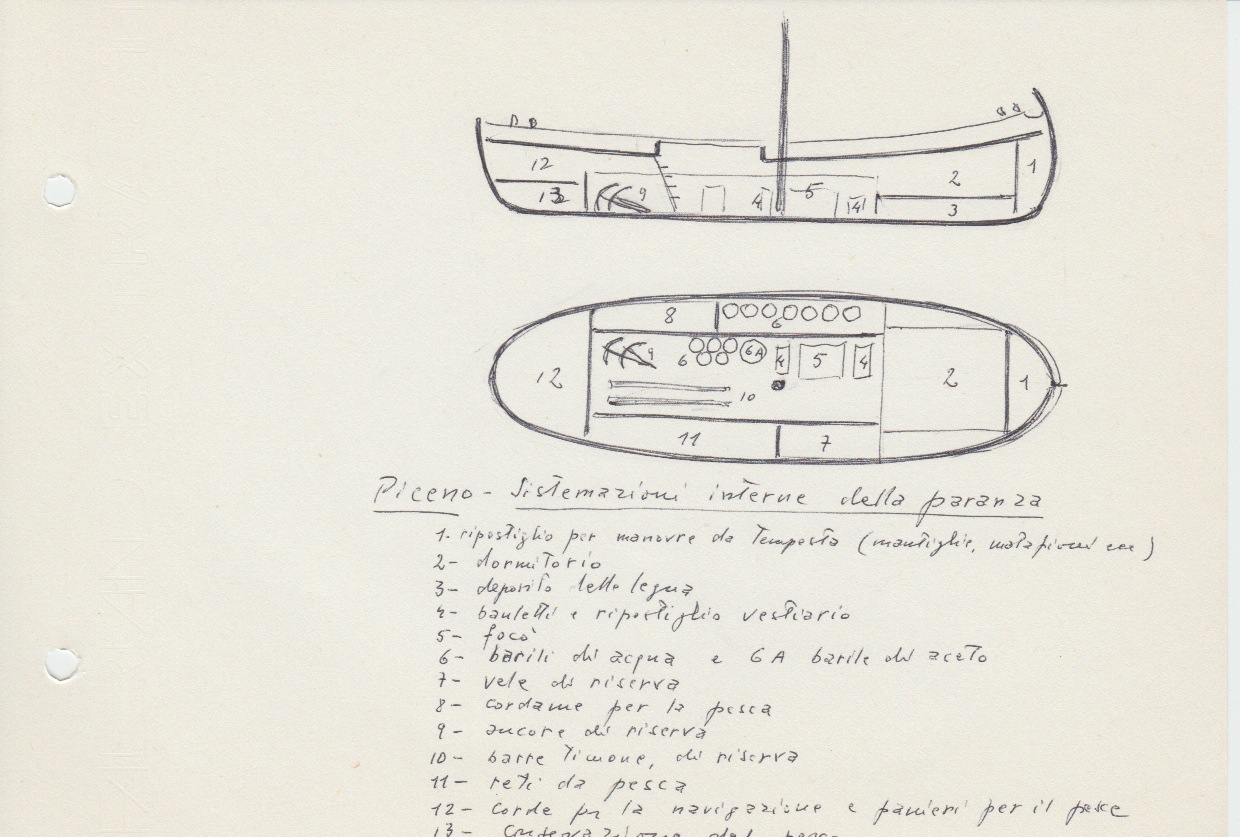 12
13
9
4
5
4
2
3
1
12
8
6
9
6
6A
4
5
4
10
11
7
2
1
Piceno - Sistemazioni interne della paranza
1- ripostiglio per manovre da tempesta (mantiglie, matafioni ecc)
2- dormitorio
3- deposito della legna
4- bauletti e ripostiglio vestiario
5- focò
6- barili di acqua e 6A barile di aceto
7- vele di riserva
8- cordame per la pesca
9- ancore di riserva
10- barre timone, di riserva
11- reti da pesca
12- corde per la navigazione e panieri per il pesce
13- Conservazione del pesce